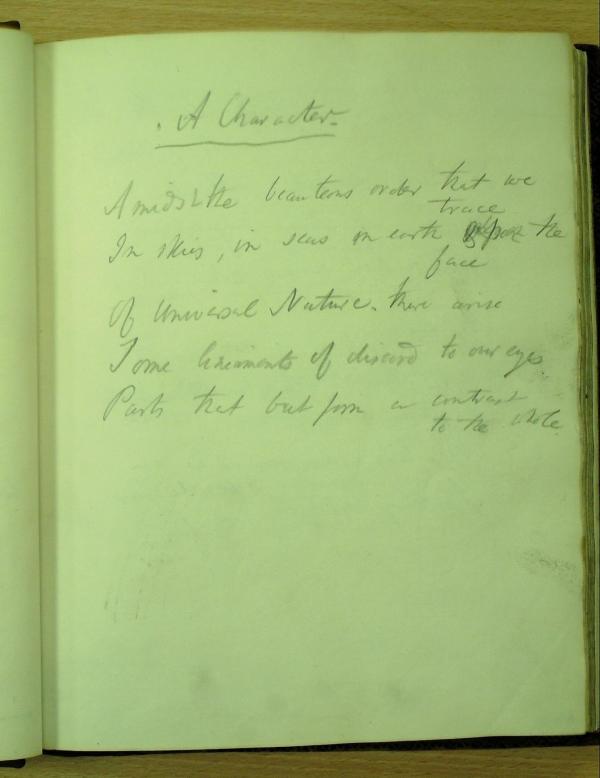 . A Character -
Amidst the beauteous order that we
trace
In skies, in seas on earth upon the
face
Of Universal Nature. there arise
Some lineaments of discord to our eyes.
Parts that but form a contrast
to the whole.